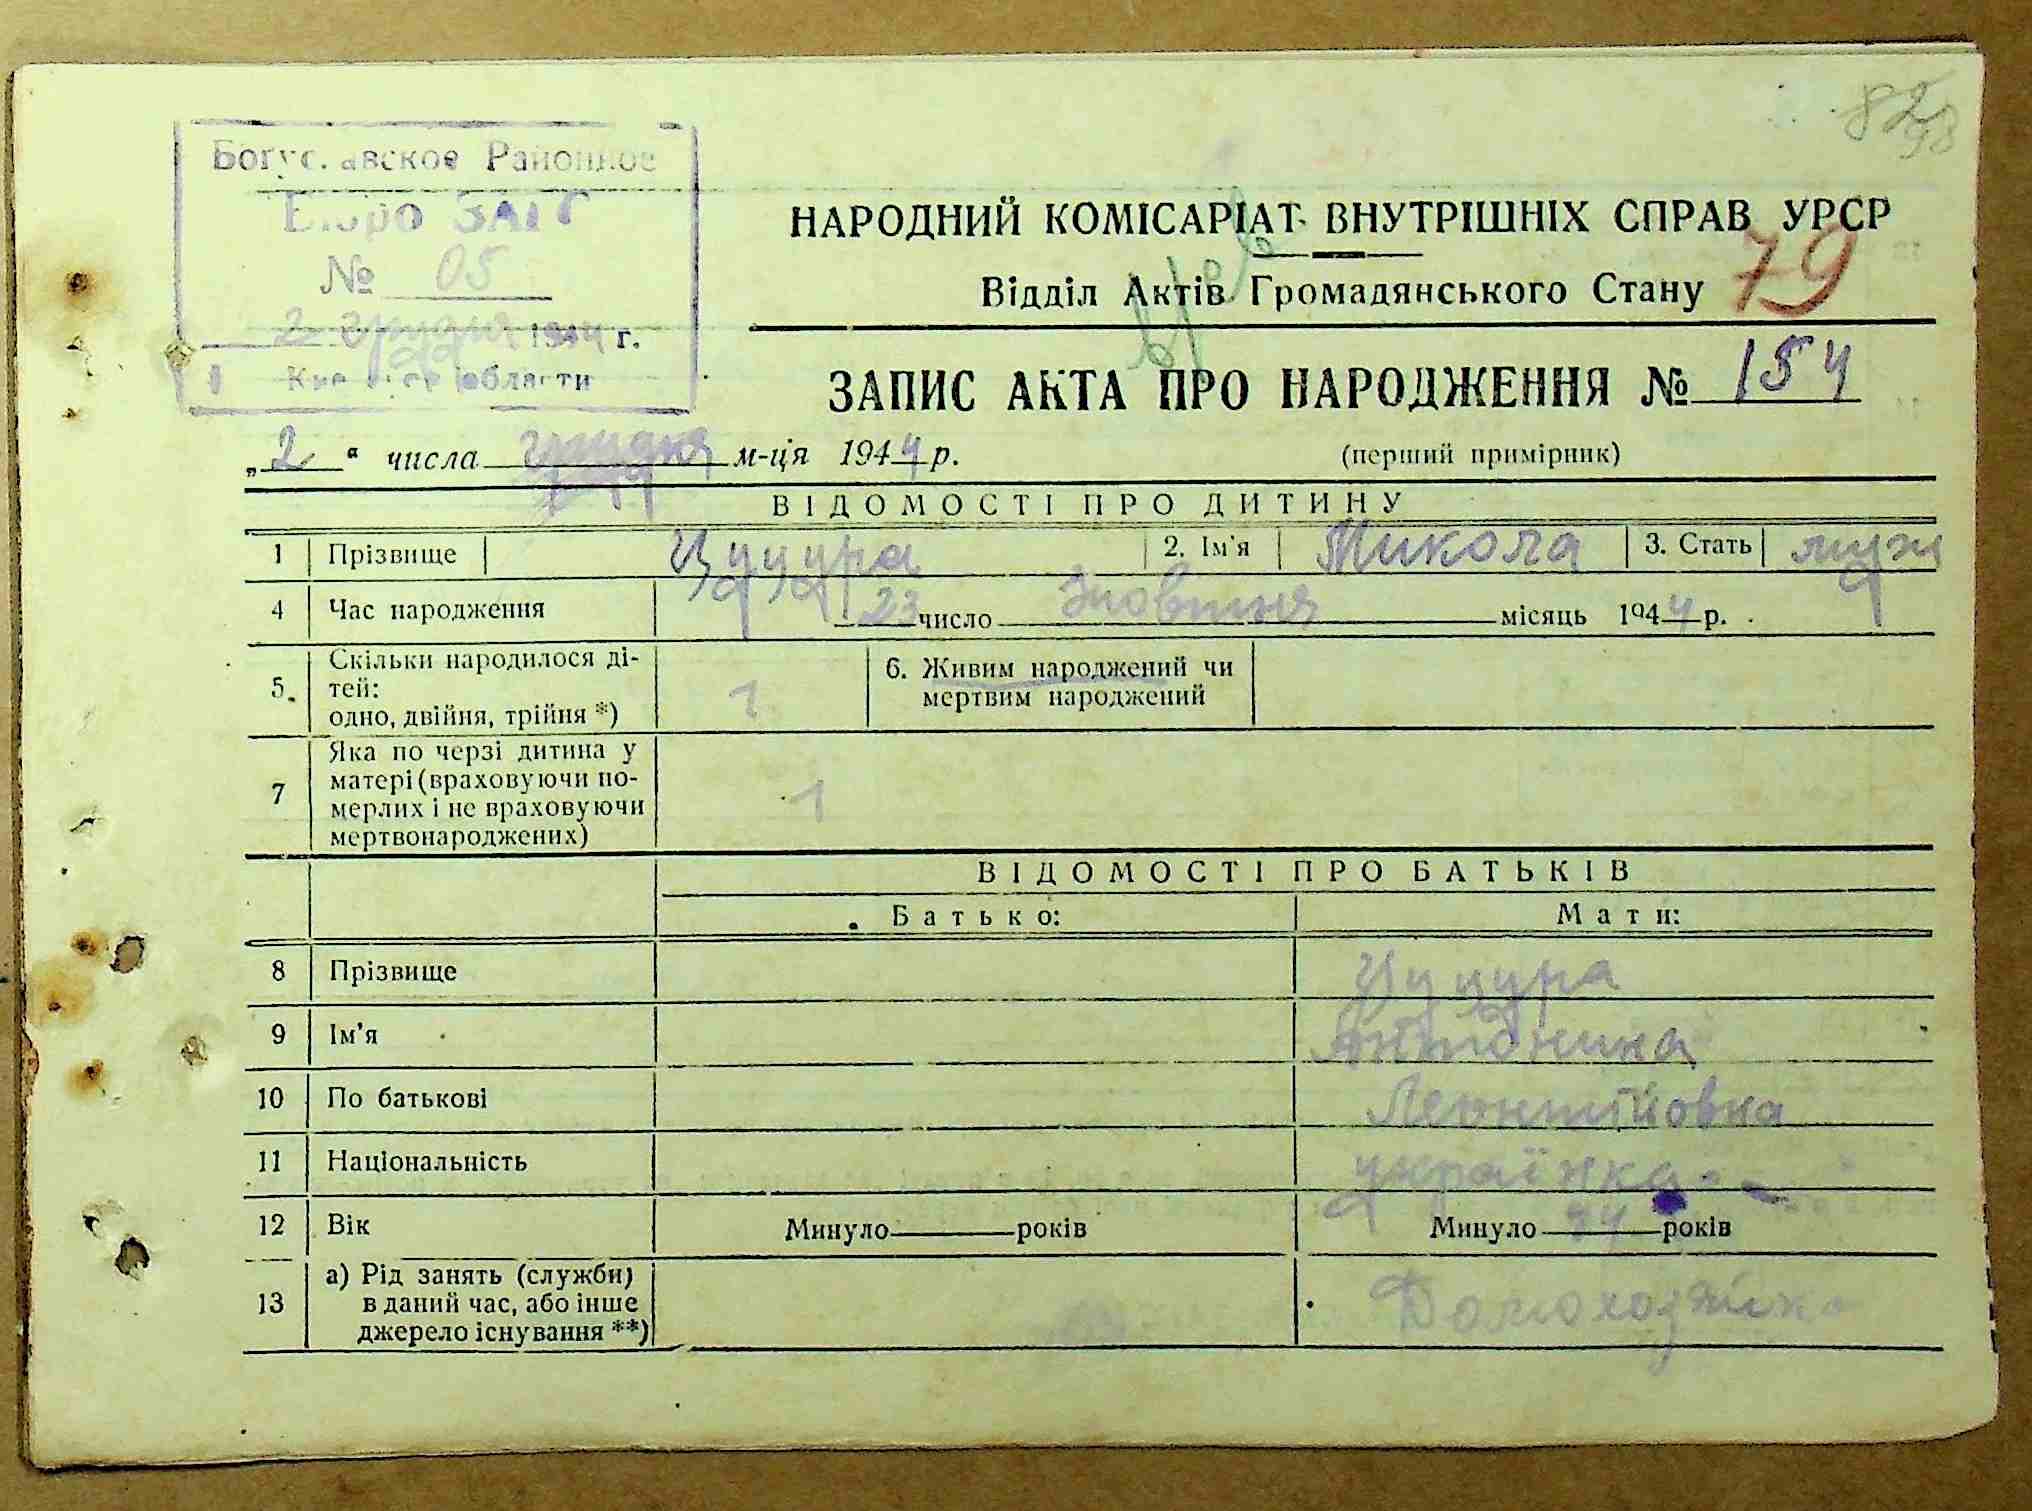 82
98
Богуславское Районное
Бюро ЗАГС
№ 05
2 грудня 1944 г.
Киевской области
НАРОДНИЙ КОМІСАРІАТ ВНУТРІШНІХ СПРАВ УРСР
Відділ Актів Громадянського Стану
79
ЗАПИС АКТА ПРО НАРОДЖЕННЯ № 154
„2“ числа грудня м-ця 1944 р. (перший примірник)
ВІДОМОСТІ ПРО ДИТИНУ
1 Прізвище Цуцура 2. Ім'я Микола 3. Стать муж
4 Час народження 23 число Жовтня місяць 1944 р.
5. Скільки народилося ді-
тей:
одно, двійня, трійня *) 1
6. Живим народжений чи
мертвим народжений
7 Яка по черзі дитина у
матері (враховуючи по-
мерлих і не враховуючи
мертвонароджених) 1
ВІДОМОСТІ ПРО БАТЬКІВ
Батько: Мати:
8 Прізвище Цуцура
9 Ім'я Антонина
10 По батькові Леонтійовна
11 Національність українка
12 Вік Минуло років Минуло років
13 а) Рід занять (служби)
в даний час, або інше
джерело існування **)